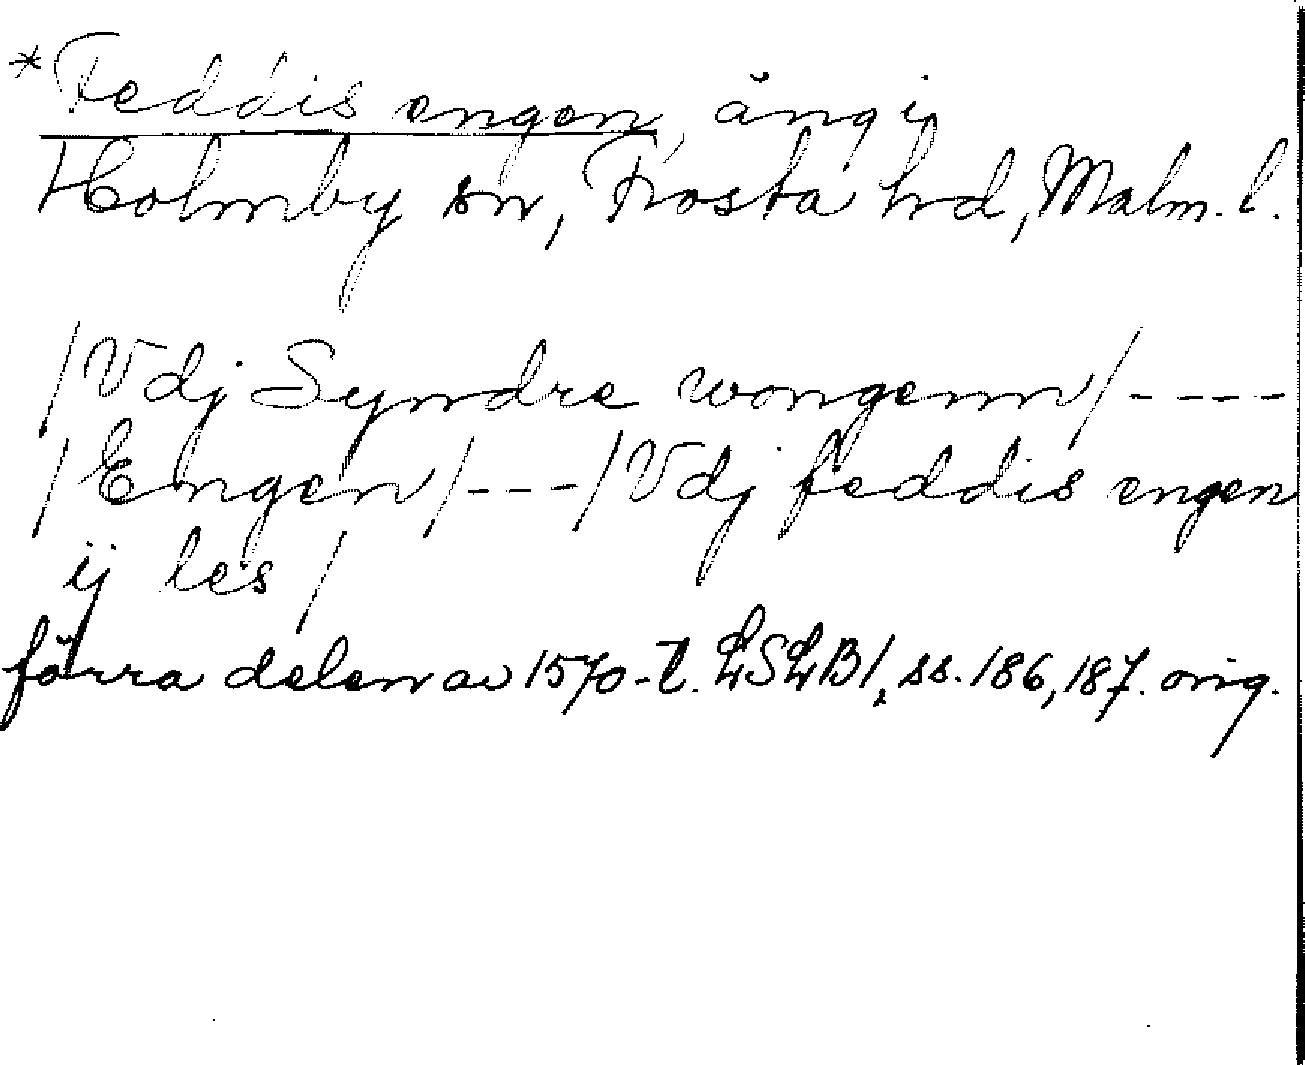 *Feddis engen, äng i
Holmby sn, Frosta hd, Malm. l.
/Vdj Syndre wongenn/----
/Engen/---/Vdj feddis engen
ij les/
förra delen av 1570-t. LSLB1, ss. 186, 187. orig.